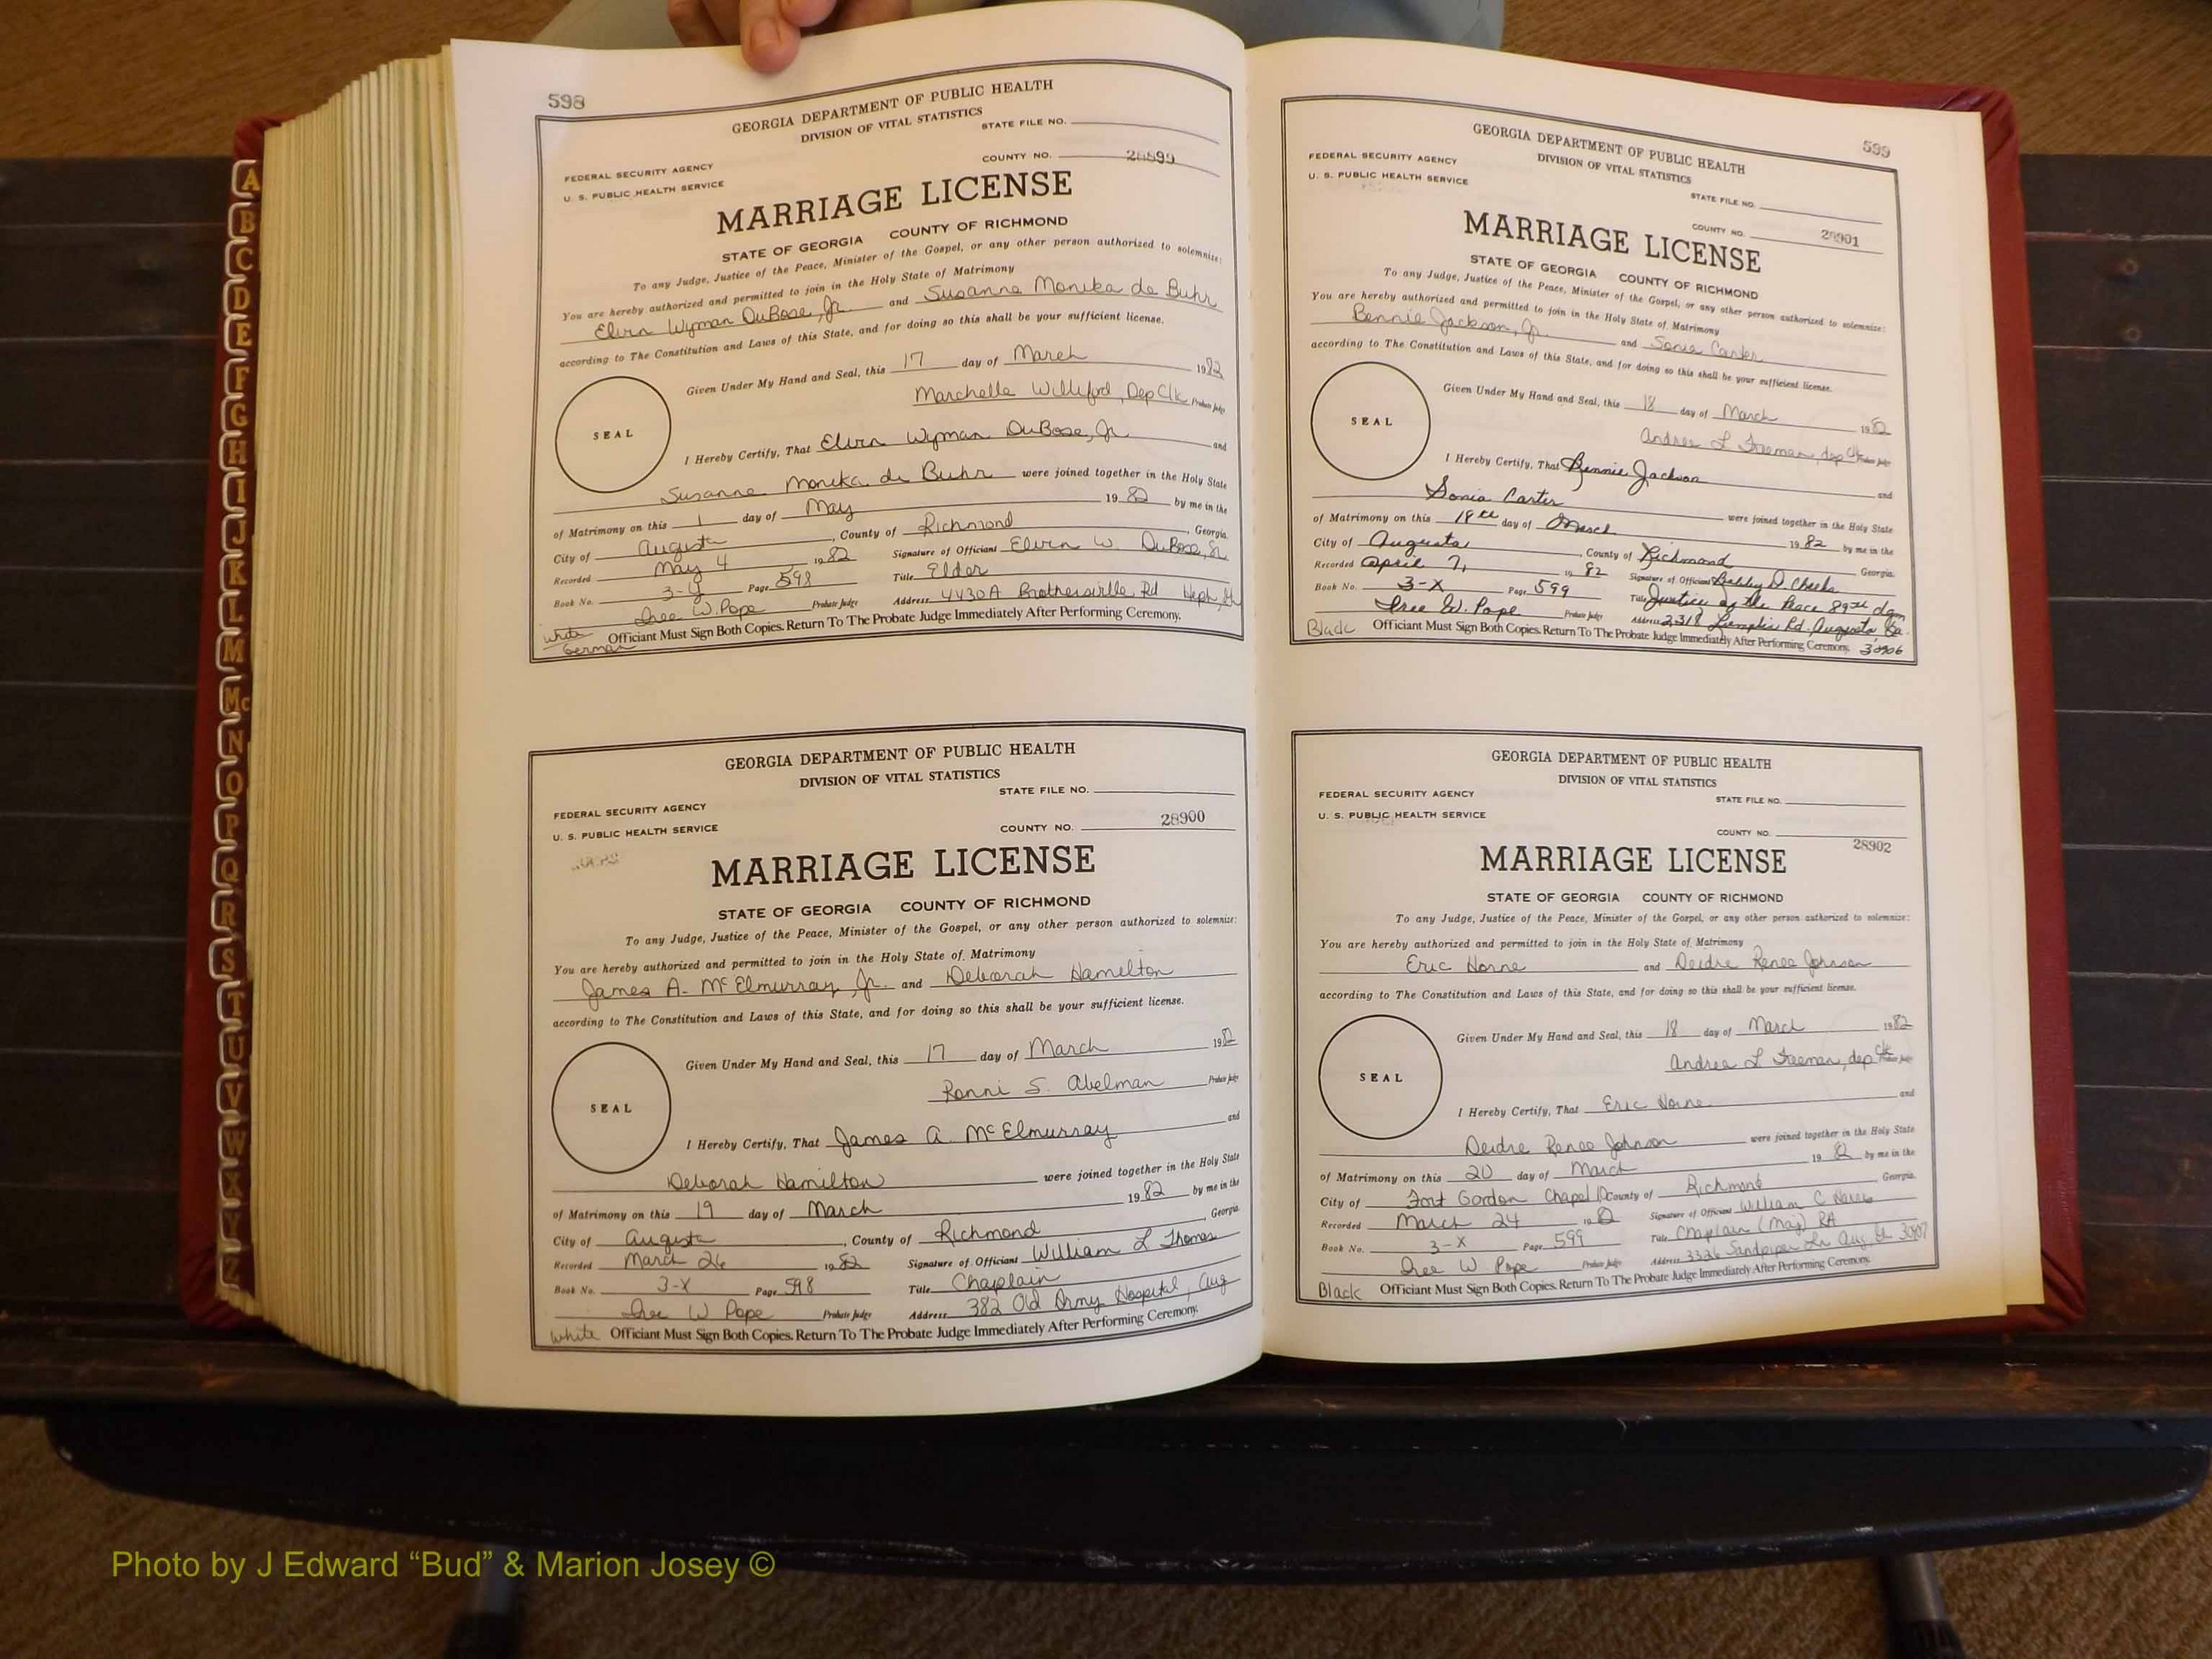 598
GEORGIA DEPARTMENT OF PUBLIC HEALTH
DIVISION OF VITAL STATISTICS
STATE FILE NO.
FEDERAL SECURITY AGENCY
U. S. PUBLIC HEALTH SERVICE
COUNTY NO. 28899
MARRIAGE LICENSE
STATE OF GEORGIA COUNTY OF RICHMOND
To any Judge, Justice of the Peace, Minister of the Gospel, or any other person authorized to solemnize:
You are hereby authorized and permitted to join in the Holy State of Matrimony
Elvin Wyman DuBose, Jr. and Susanne Monika de Buhr
according to The Constitution and Laws of this State, and for doing so this shall be your sufficient license.
Given Under My Hand and Seal, this 17 day of March 1982
Marchelle Williford, Dep Clk Probate Judge
SEAL
I Hereby Certify, That Elvin Wyman DuBose, Jr. and
Susanne Monika de Buhr were joined together in the Holy State
of Matrimony on this 1 day of May 1982 by me in the
City of Augusta, County of Richmond, Georgia.
Recorded May 4 1982 Signature of Officiant Elvin W. DuBose, Sr.
Book No. 3-X Page 598 Title Elder
Iree W. Pope Probate Judge Address 4430A Brothersville Rd Heph, Ga
White German Officiant Must Sign Both Copies. Return To The Probate Judge Immediately After Performing Ceremony.
GEORGIA DEPARTMENT OF PUBLIC HEALTH
DIVISION OF VITAL STATISTICS
STATE FILE NO.
FEDERAL SECURITY AGENCY
U. S. PUBLIC HEALTH SERVICE
COUNTY NO. 28900
MARRIAGE LICENSE
STATE OF GEORGIA COUNTY OF RICHMOND
To any Judge, Justice of the Peace, Minister of the Gospel, or any other person authorized to solemnize:
You are hereby authorized and permitted to join in the Holy State of Matrimony
James A. McElmurray, Jr. and Deborah Hamilton
according to The Constitution and Laws of this State, and for doing so this shall be your sufficient license.
Given Under My Hand and Seal, this 17 day of March 1982
Ronni S. Abelman Probate Judge
SEAL
I Hereby Certify, That James A. McElmurray and
Deborah Hamilton were joined together in the Holy State
of Matrimony on this 19 day of March 1982 by me in the
City of Augusta, County of Richmond, Georgia.
Recorded March 26 1982 Signature of Officiant William L Thomas
Book No. 3-X Page 598 Title Chaplain
Iree W Pope Probate Judge Address 382 Old Army Hospital, Aug
White Officiant Must Sign Both Copies. Return To The Probate Judge Immediately After Performing Ceremony.
599
GEORGIA DEPARTMENT OF PUBLIC HEALTH
DIVISION OF VITAL STATISTICS
FEDERAL SECURITY AGENCY
U. S. PUBLIC HEALTH SERVICE
STATE FILE NO.
COUNTY NO. 28901
MARRIAGE LICENSE
STATE OF GEORGIA COUNTY OF RICHMOND
To any Judge, Justice of the Peace, Minister of the Gospel, or any other person authorized to solemnize:
You are hereby authorized and permitted to join in the Holy State of Matrimony
Bennie Jackson, Jr. and Sonia Carter
according to The Constitution and Laws of this State, and for doing so this shall be your sufficient license.
Given Under My Hand and Seal, this 18 day of March 1982
Andrea L Freeman, dep Clk Probate Judge
SEAL
I Hereby Certify, That Bennie Jackson and
Sonia Carter were joined together in the Holy State
of Matrimony on this 18th day of March 1982 by me in the
City of Augusta, County of Richmond Georgia.
Recorded April 7, 1982 Signature of Officiant Bobby D. Cheeks
Book No. 3-X Page 599 Title Justice of the Peace 89th
Iree W. Pope Probate Judge Address 2318 Lumpkin Rd. Augusta, Ga. 30906
Black Officiant Must Sign Both Copies. Return To The Probate Judge Immediately After Performing Ceremony.
GEORGIA DEPARTMENT OF PUBLIC HEALTH
DIVISION OF VITAL STATISTICS
FEDERAL SECURITY AGENCY
STATE FILE NO.
U. S. PUBLIC HEALTH SERVICE
COUNTY NO. 28902
MARRIAGE LICENSE
STATE OF GEORGIA COUNTY OF RICHMOND
To any Judge, Justice of the Peace, Minister of the Gospel, or any other person authorized to solemnize:
You are hereby authorized and permitted to join in the Holy State of Matrimony
Eric Horne and Deidre Renee Johnson
according to The Constitution and Laws of this State, and for doing so this shall be your sufficient license.
Given Under My Hand and Seal, this 18 day of March 1982
Andrea L. Freeman, dep Clk Probate Judge
SEAL
I Hereby Certify, That Eric Horne and
Deidre Renee Johnson were joined together in the Holy State
of Matrimony on this 20 day of March 1982 by me in the
City of Fort Gordon Chapel County of Richmond Georgia.
Recorded March 24 1982 Signature of Officiant William C
Book No. 3-X Page 599 Title Chaplain (Maj) RA
Iree W Pope Probate Judge Address 3326 Sandpiper Ln Aug Ga 30907
Black Officiant Must Sign Both Copies. Return To The Probate Judge Immediately After Performing Ceremony.
A
B
C
D
E
F
G
H
I
J
K
L
M
Mc
N
O
P
Q
R
S
T
U
V
W
X
Y
Z
Photo by J Edward “Bud” & Marion Josey ©